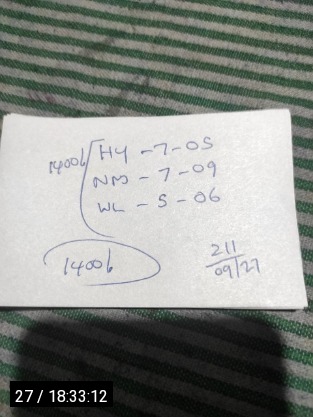 14006 HY - 7 - 05
NM - 7 - 09
WL - 5 - 06
14006
211
09/27
27 / 18:33:12